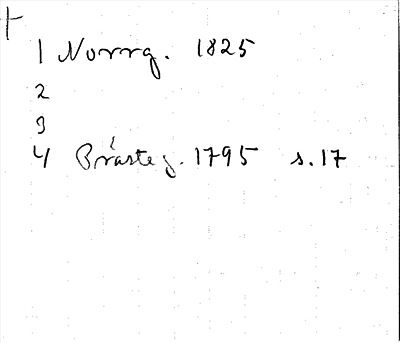 1 Norrg. 1825
2
3
4 Prásteg. 1795 s. 17